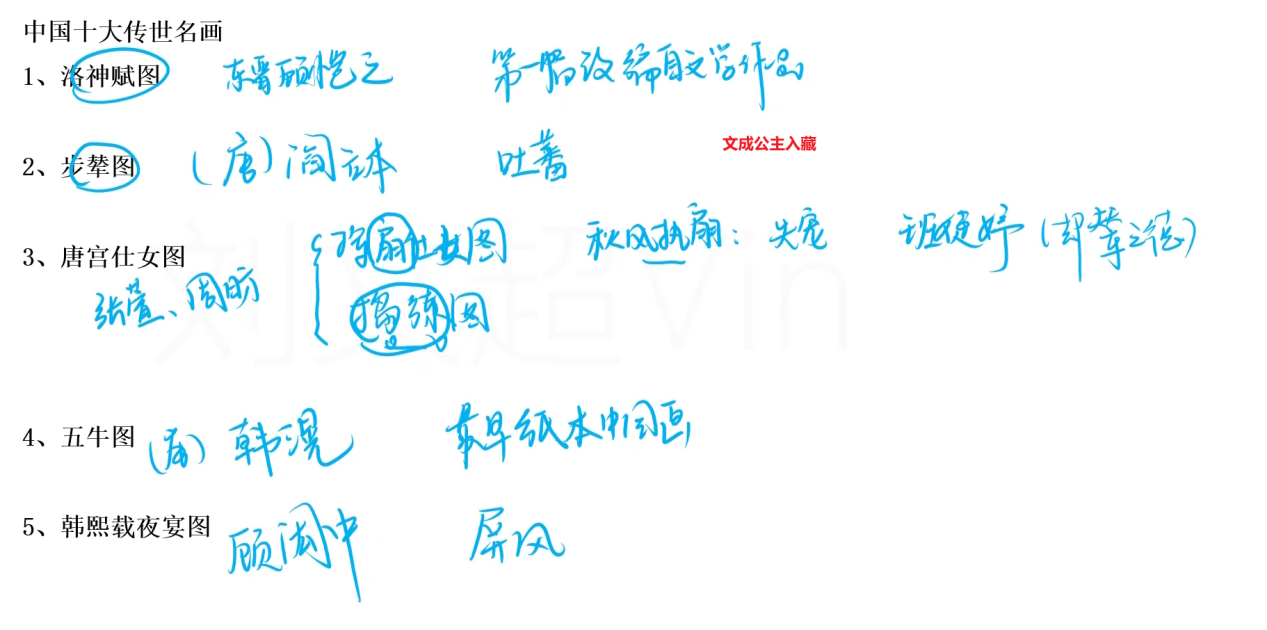 中国十大传世名画
1、洛神赋图 东晋顾恺之 第一幅改编自文学作品
2、步辇图 (唐)阎立本 吐蕃 文成公主入藏
3、唐宫仕女图 张萱、周昉
挥扇仕女图 秋风执扇：失宠 班婕妤(却辇之德)
捣练图
4、五牛图 (唐) 韩滉 最早纸本中国画
5、韩熙载夜宴图 顾闳中 屏风